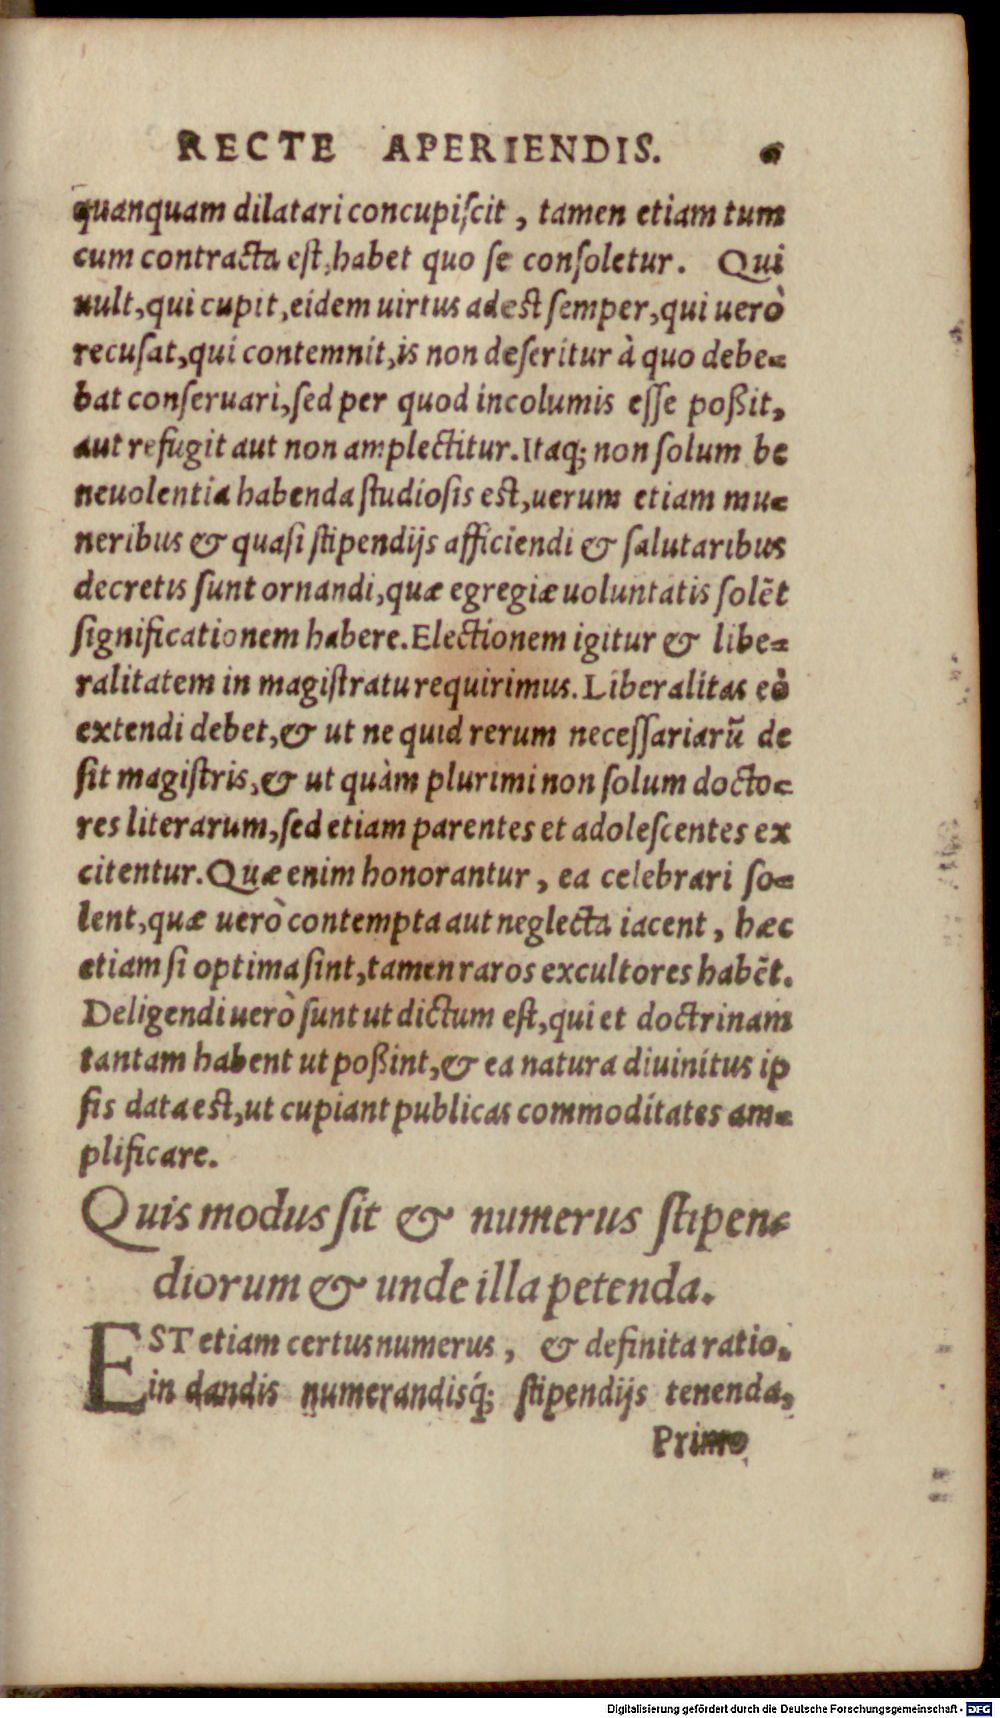 RECTE APERIENDIS. 6
quanquam dilatari concupiſcit, tamen etiam tum
cum contracta eſt, habet quo ſe conſoletur. Qui
uult, qui cupit, eidem uirtus adeſt ſemper, qui uerò
recuſat, qui contemnit, is non deſeritur à quo debe-
bat conſeruari, ſed per quod incolumis eſſe poßit,
aut refugit aut non amplectitur. Itaq; non ſolum be
neuolentia habenda ſtudioſis eſt, uerum etiam mu-
neribus & quaſi ſtipendijs afficiendi & ſalutaribus
decretis ſunt ornandi, quæ egregiæ uoluntatis ſolēt
ſignificationem habere. Electionem igitur & libe-
ralitatem in magiſtratu requirimus. Liberalitas eò
extendi debet, & ut ne quid rerum neceſſariarū de
ſit magiſtris, & ut quàm plurimi non ſolum docto-
res literarum, ſed etiam parentes et adoleſcentes ex
citentur. Quæ enim honorantur, ea celebrari ſo-
lent, quæ uerò contempta aut neglecta iacent, hæc
etiam ſi optima ſint, tamen raros excultores habēt.
Deligendi uerò ſunt ut dictum eſt, qui et doctrinam
tantam habent ut poßint, & ea natura diuinitus ip
ſis data eſt, ut cupiant publicas commoditates am-
plificare.
Quis modus ſit & numerus ſtipen-
diorum & unde illa petenda.
EST etiam certus numerus, & definita ratio
in dandis numerandisq́; ſtipendijs tenenda,
Primo
Digitalisierung gefördert durch die Deutsche Forschungsgemeinschaft - DFG